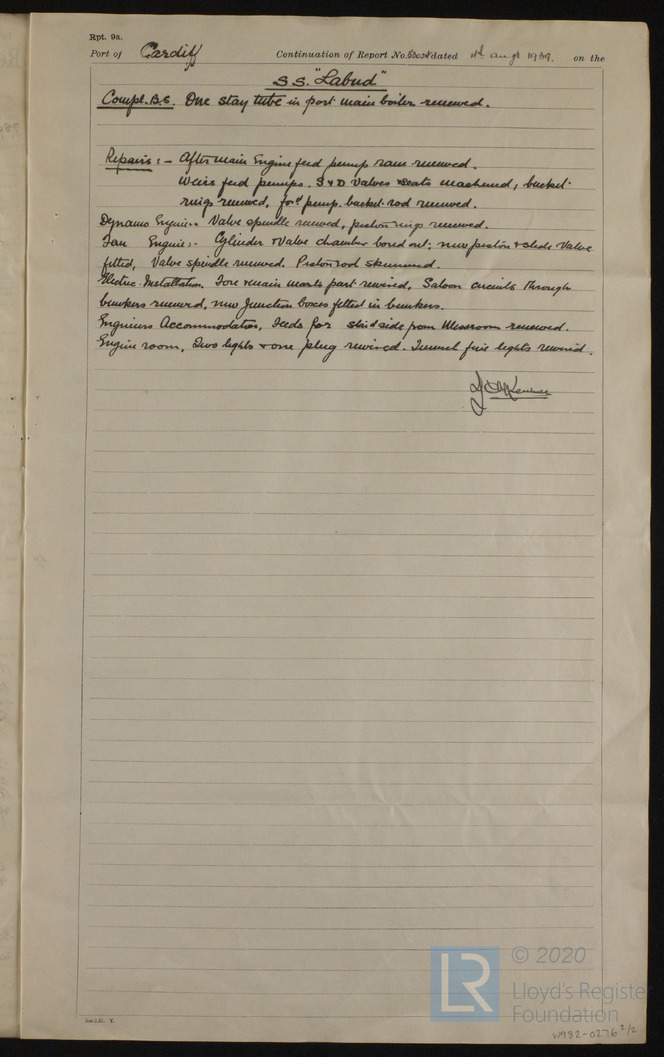 Rpt. 9a.
Port of Cardiff Continuation of Report No. dated 4th Augt 1939. on the
S.S. "Labud"
Compl. B.S. One stay tube in port main boiler renewed.
Repairs :- After main Engine feed pump ram renewed.
Weirs feed pumps. S & D Valves & seats machined, bucket
rings renewed, for'd pump. bucket rod renewed.
Dynamo Engine :- Valve spindle renewed, piston rings renewed.
Fan Engine :- Cylinder & Valve chamber bored out; new piston & slide valve
fitted, Valve spindle renewed. Piston rod skimmed.
Electric Installation. Fore & main masts part rewired, Saloon circuits through
bunkers renewed, new Junction boxes fitted in bunkers.
Engineers Accommodation, Feeds for stbd side from Messroom renewed.
Engine room, Two lights & one plug rewired. Tunnel five lights rewired.
© 2020
LR
Lloyd's Register
Foundation
W982-0276 2/2